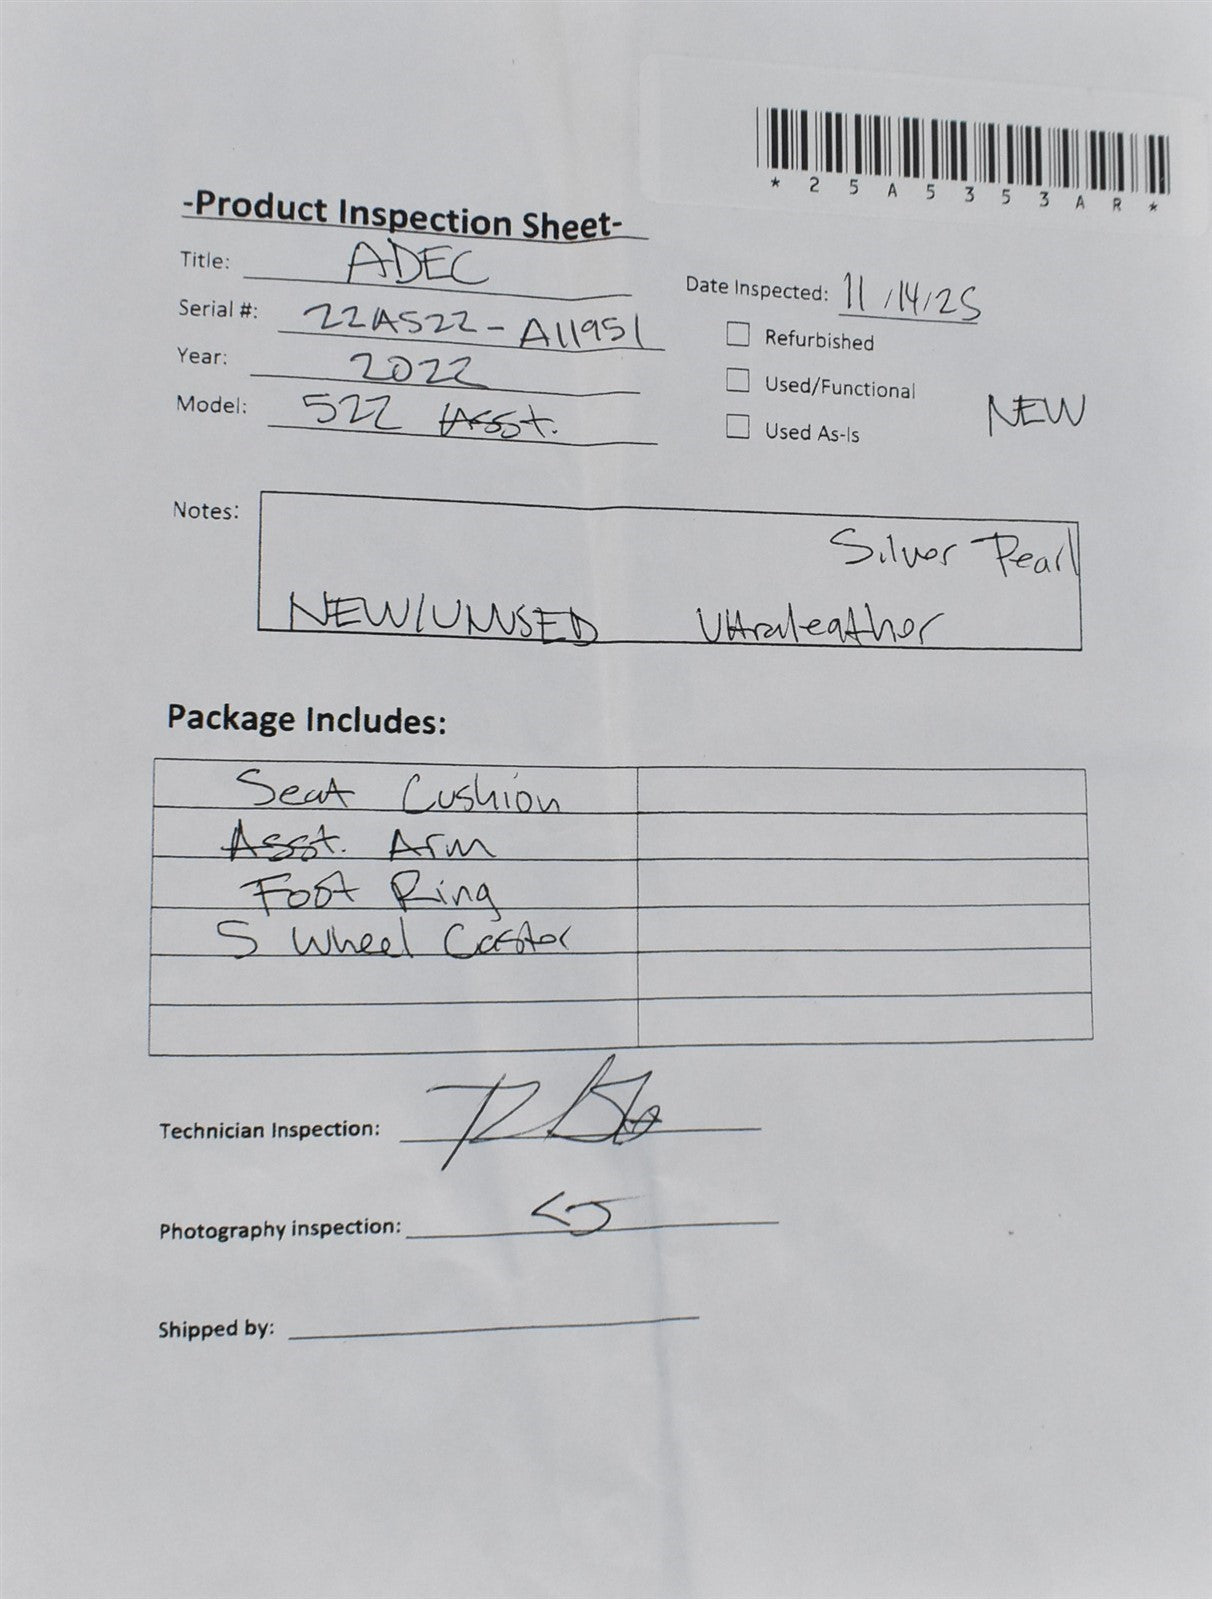 *25A5353AR*
-Product Inspection Sheet-
Title: ADEC
Serial #: 22A522-A11951
Year: 2022
Model: 522 Asst.
Date Inspected: 11/14/25
Refurbished
Used/Functional
Used As-Is
NEW
Notes:
Silver Pearl
NEW/UNUSED Ultraleather
Package Includes:
Seat Cushion
Asst. Arm
Foot Ring
5 Wheel Castor
Technician Inspection:
Photography inspection:
Shipped by: